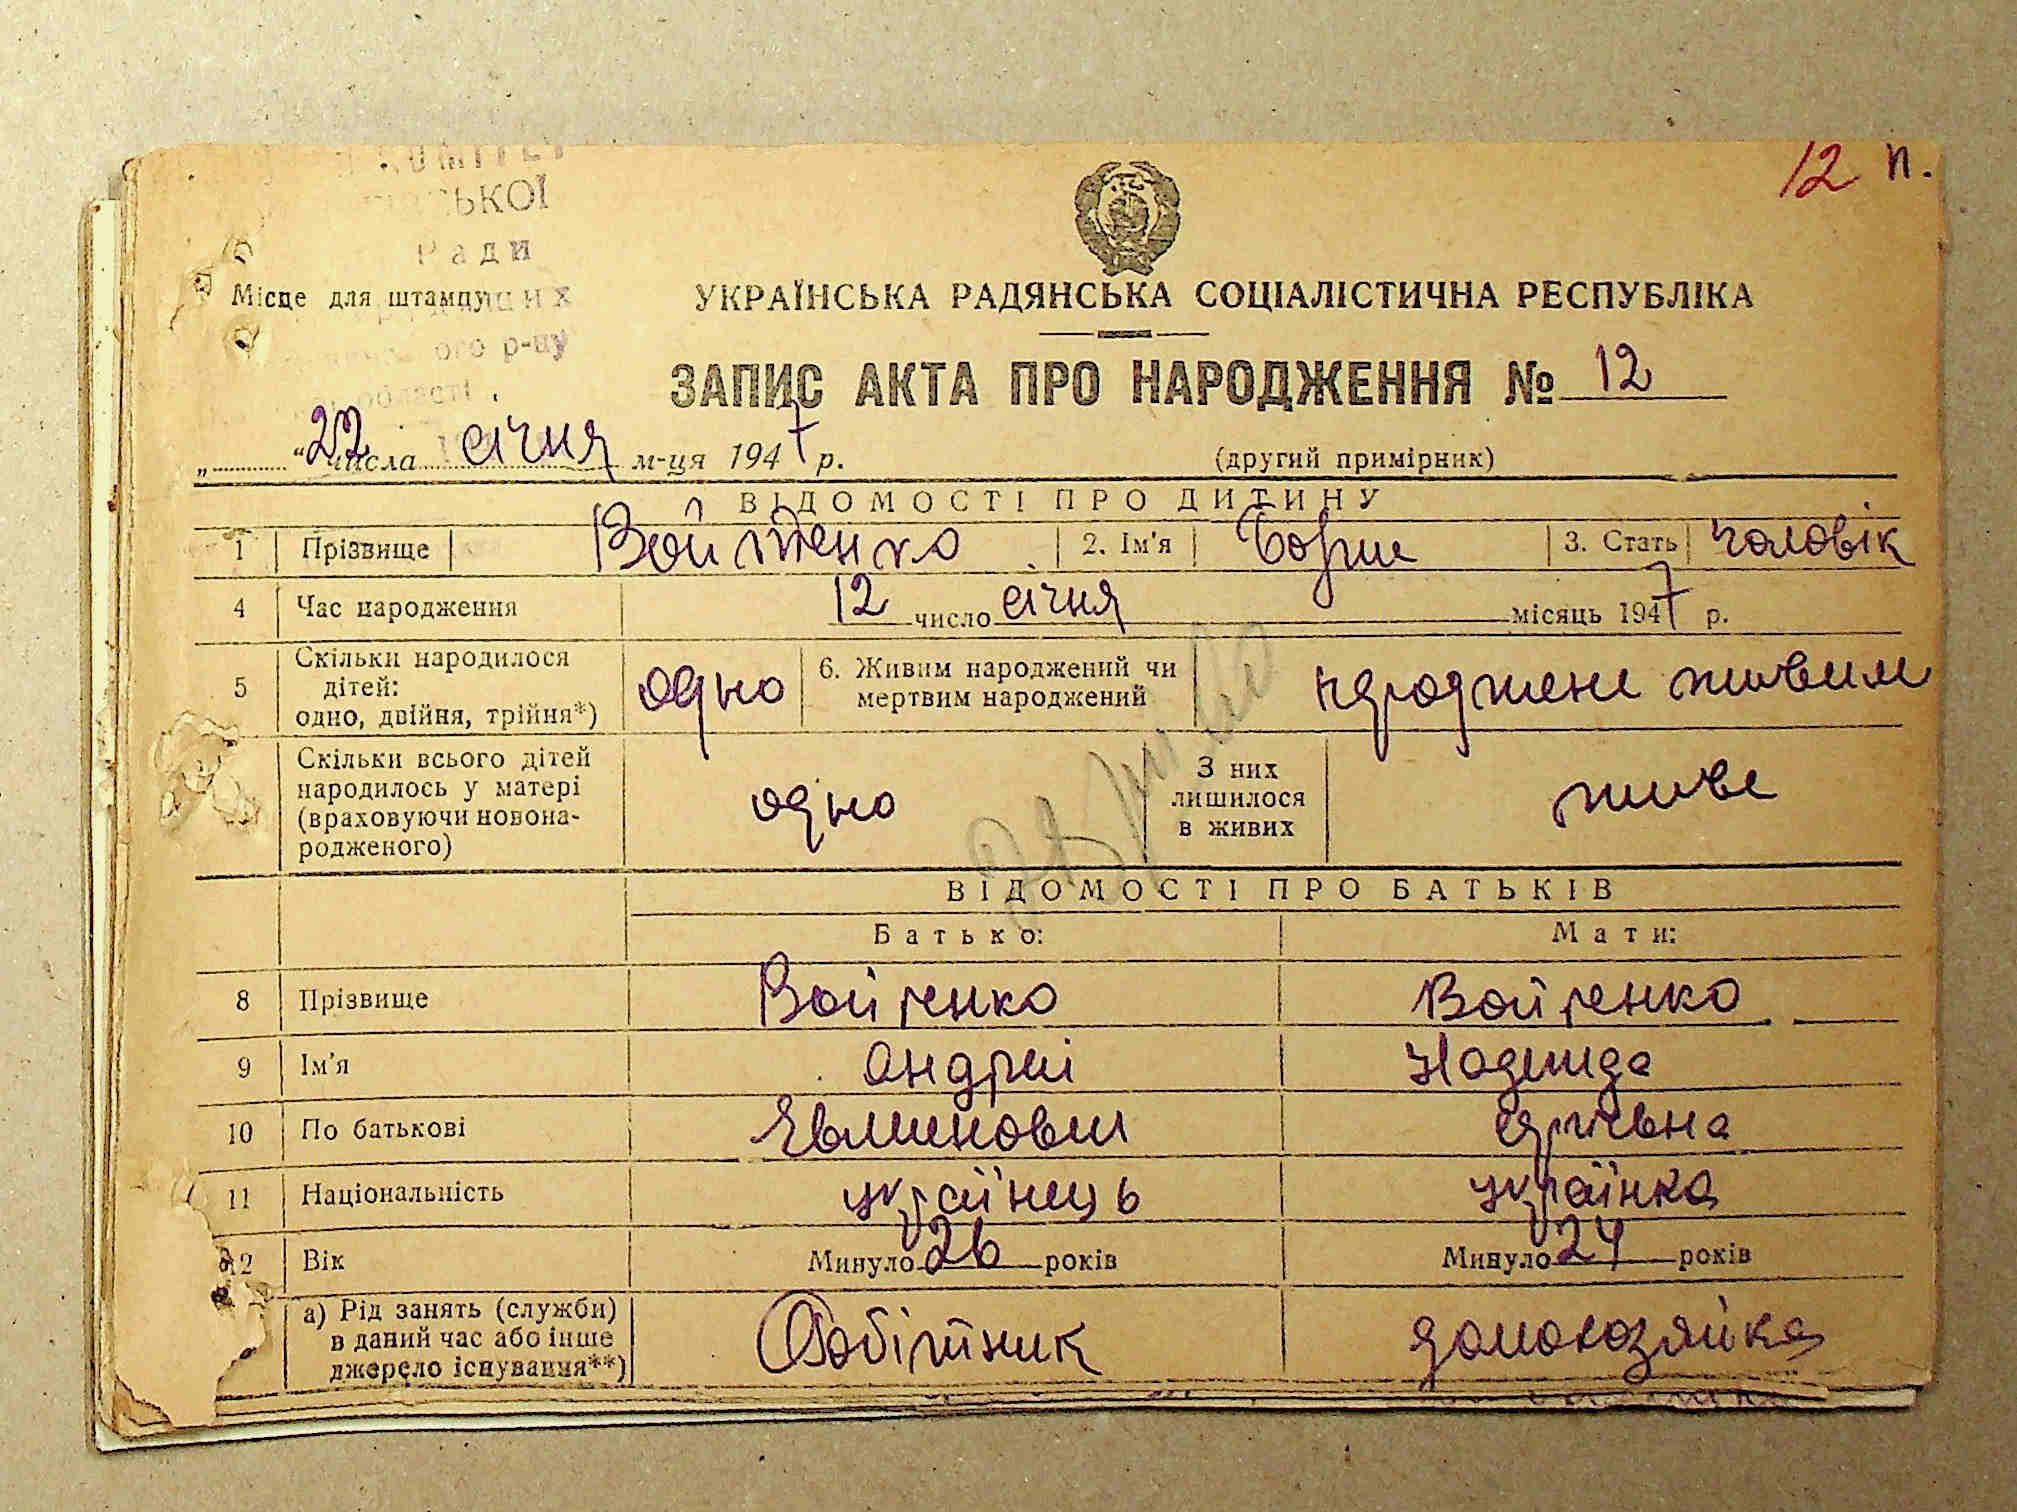 12 п.
СЬКОЇ
Ради
Місце для штампу
р-ну
області
УКРАЇНСЬКА РАДЯНСЬКА СОЦІАЛІСТИЧНА РЕСПУБЛІКА
ЗАПИС АКТА ПРО НАРОДЖЕННЯ № 12
„ “ 22 числа січня м-ця 1947 р.
(другий примірник)
ВІДОМОСТІ ПРО ДИТИНУ
1 Прізвище Войтенко 2. Ім'я Борис 3. Стать чоловік
4 Час народження 12 число січня місяць 1947 р.
5 Скільки народилося дітей: одно, двійня, трійня*) одно 6. Живим народжений чи мертвим народжений народжене живим
Скільки всього дітей народилось у матері (враховуючи новона-родженого) одно З них лишилося в живих живе
ВІДОМОСТІ ПРО БАТЬКІВ
Батько: Мати:
8 Прізвище Войтенко Войтенко
9 Ім'я Андрій Надежда
10 По батькові
11 Національність українець українка
12 Вік Минуло 26 років Минуло 24 років
а) Рід занять (служби) в даний час або інше джерело існування**) Робітник домохозяйка